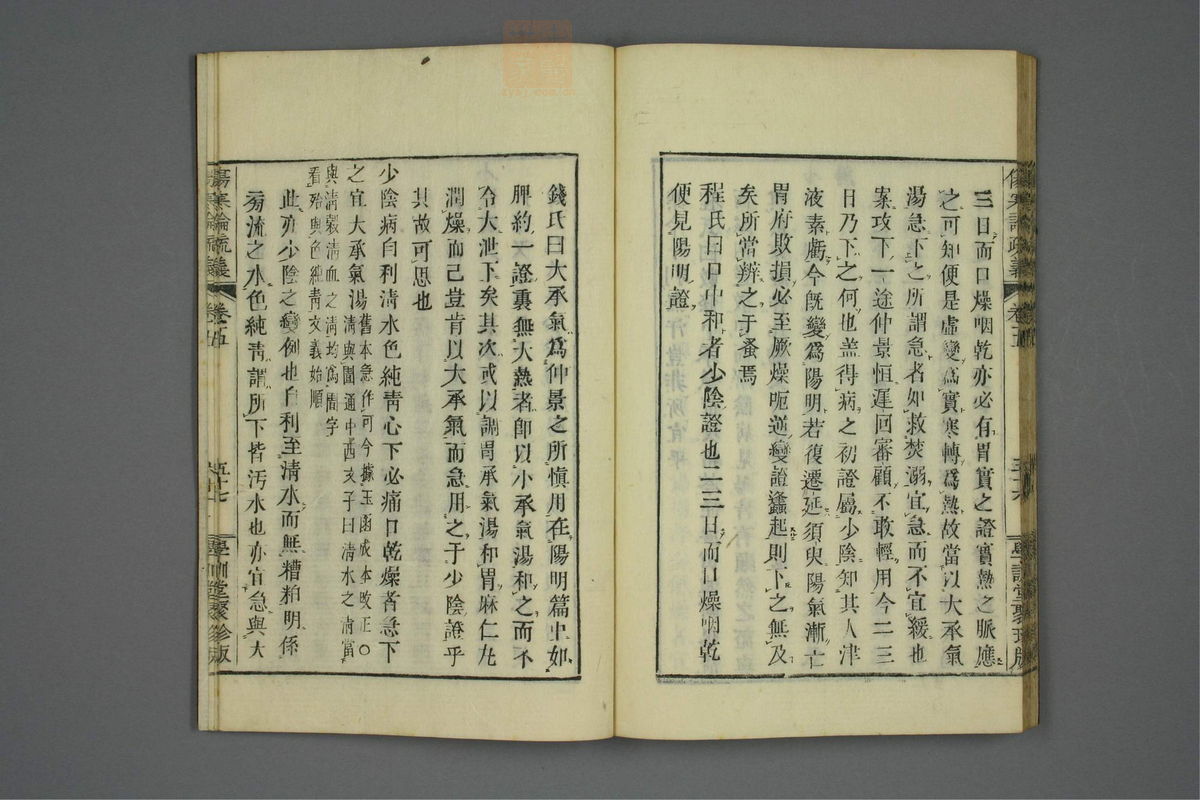 三日而口燥咽乾亦必有胃實之證實熱之脈應
之可知便是虛變爲實寒轉爲熱故當以大承氣
湯急下之所謂急者如救焚溺宜急而不宜緩也
案攻下一途仲景恒遲回審顧不敢輕用今二三
日乃下之何也盖得病之初證屬少陰知其人津
液素虧今旣變爲陽明若復遷延須臾陽氣漸亡
胃府敗損必至厥燥呃逆變證蠭起則下之無及
矣所當辨之于蚤焉
程氏曰口中和者少陰證也二三日而口燥咽乾
便見陽明證
錢氏曰大承氣爲仲景之所愼用在陽明篇中如
脾約一證裏無大熱者卽以小承氣湯和之而不
令大泄下矣其次或以調胃承氣湯和胃麻仁丸
潤燥而已豈肯以大承氣而急用之于少陰證乎
其故可思也
少陰病自利淸水色純靑心下必痛口乾燥者急下
之宜大承氣湯舊本急作可今據玉函成本改正〇
淸與圊通中西亥子曰淸水之淸當
與淸穀淸血之淸均爲圊字
看殆與色純靑文義始順
此亦少陰之變例也自利至淸水而無糟粕明係
旁流之水色純靑謂所下皆汚水也亦宜急與大
傷寒論疏義 卷五 五十七 學訓堂聚珍版